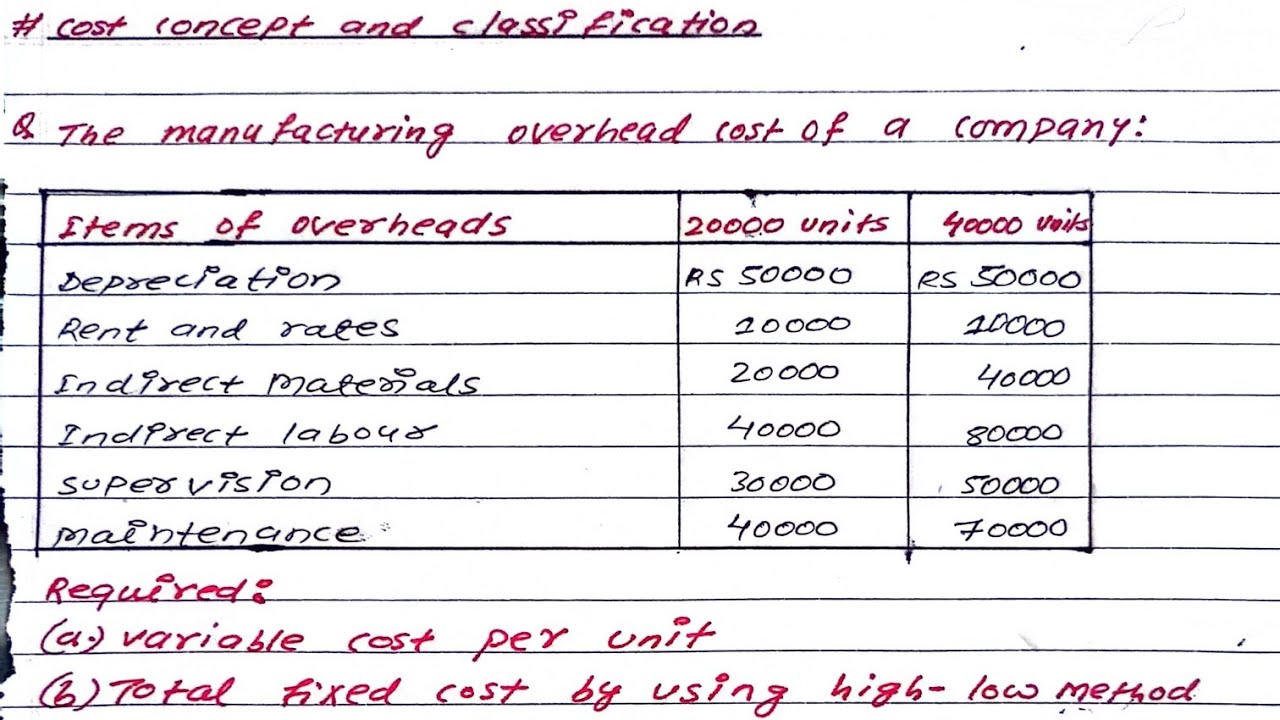 # cost concept and classification
Q The manufacturing overhead cost of a company:
Items of overheads 20000 units 40000 units
Depreciation RS 50000 RS 50000
Rent and rates 10000 10000
Indirect Materials 20000 40000
Indirect labour 40000 80000
supervision 30000 50000
maintenance 40000 70000
Required:
(a.) variable cost per unit
(b) Total fixed cost by using high-low method